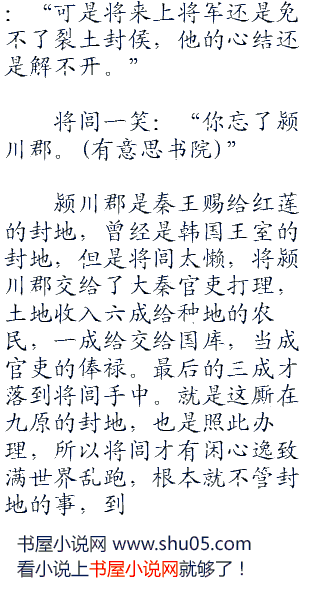 ：“可是将来上将军还是免
不了裂土封侯，他的心结还
是解不开。”
将闾一笑：“你忘了颍
川郡。(有意思书院)”
颍川郡是秦王赐给红莲
的封地，曾经是韩国王室的
封地，但是将闾太懒，将颍
川郡交给了大秦官吏打理，
土地收入六成给种地的农
民，一成给交给国库，当成
官吏的俸禄。最后的三成才
落到将闾手中。就是这厮在
九原的封地，也是照此办
理，所以将闾才有闲心逸致
满世界乱跑，根本就不管封
地的事，到
书屋小说网 www.shu05.com
看小说上书屋小说网就够了！